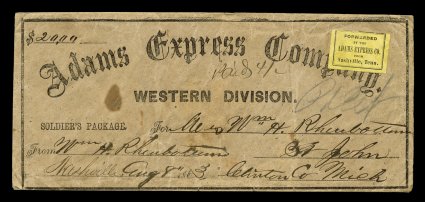 $20.00
FORWARDED
BY THE
ADAMS EXPRESS CO.
FROM
Nashville, Tenn.
Adams Express Company,
Paid
WESTERN DIVISION.
SOLDIER'S PACKAGE. For Mrs Wm H. Rhinbottom
From Wm H. Rhinbottom St John
Nashville Aug 8th 63 Clinton Co Mich